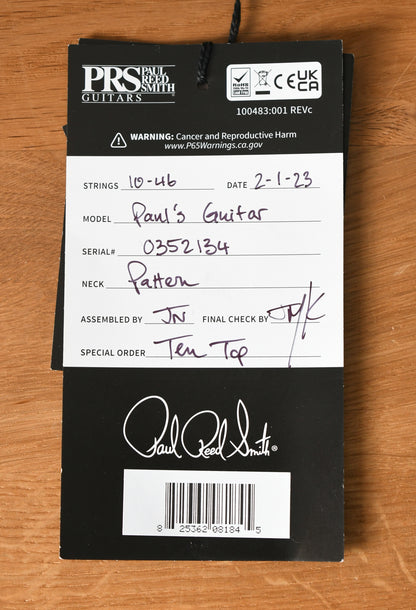 PRS PAUL REED SMITH
GUITARS
RoHS UK CA CE
100483:001 REVc
WARNING: Cancer and Reproductive Harm
www.P65Warnings.ca.gov
STRINGS 10-46 DATE 2-1-23
MODEL Paul's Guitar
SERIAL# 0352134
NECK Pattern
ASSEMBLED BY JN FINAL CHECK BY JMK
SPECIAL ORDER Ten Top
Paul Reed Smith®
8 25362 08184 5